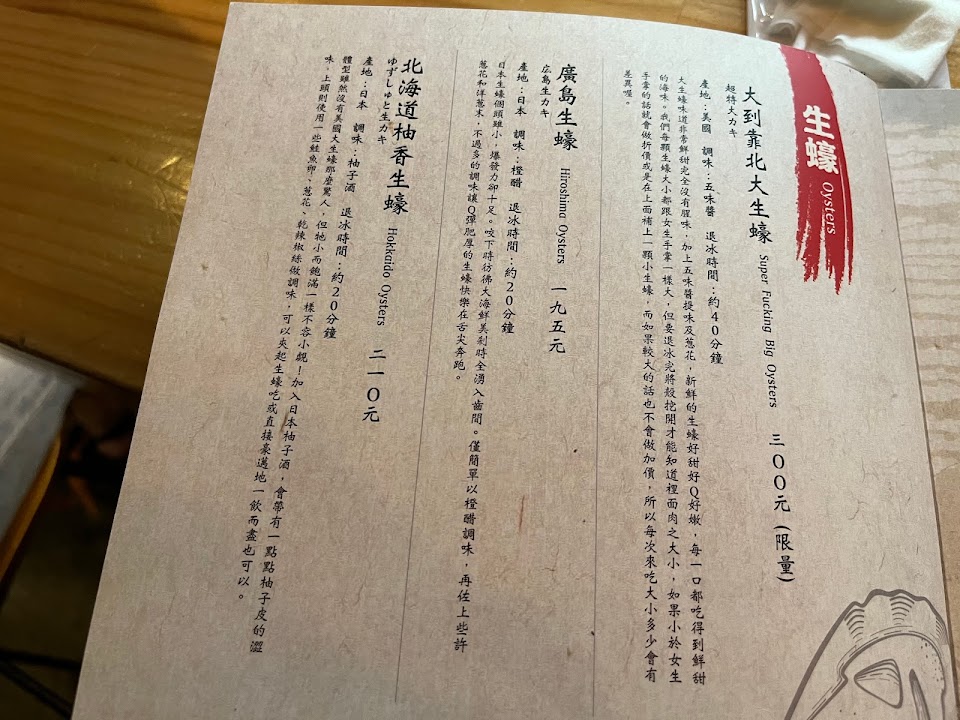 生蠔 Oysters
大到靠北大生蠔 Super Fucking Big Oysters 三００元(限量)
超特大カキ
產地:美國 調味:五味醬 退冰時間:約40分鐘
大生蠔味道非常鮮甜完全沒有腥味，加上五味醬提味及蔥花，新鮮的生蠔好甜好Q好嫩，每一口都吃得到鮮甜
的海味。我們每顆生蠔大小都跟女生手掌一樣大，但要退冰完將殼挖開才能知道裡面肉之大小，如果小於女生
手掌的話就會做折價或是在上面補上一顆小生蠔，而如果較大的話也不會做加價，所以每次來吃大小多少會有
差異喔。
廣島生蠔 Hiroshima Oysters 一九五元
広島生カキ
產地:日本 調味:橙醋 退冰時間:約20分鐘
日本生蠔個頭雖小，爆發力卻十足。咬下時彷彿大海鮮美剎時全湧入齒間。僅簡單以橙醋調味，再佐上些許
蔥花和洋蔥末，不過多的調味讓Q彈肥厚的生蠔快樂在舌尖奔跑。
北海道柚香生蠔 Hokkaido Oysters 二一０元
ゆずしゅと生カキ
產地:日本 調味:柚子酒 退冰時間:約20分鐘
體型雖然沒有美國大生蠔那麼驚人，但牠小而飽滿一樣不容小覷！加入日本柚子酒，會帶有一點點柚子皮的澀
味，上頭則使用一些鮭魚卵、蔥花、乾辣椒絲做調味，可以夾起生蠔吃或直接豪邁地一飲而盡也可以。